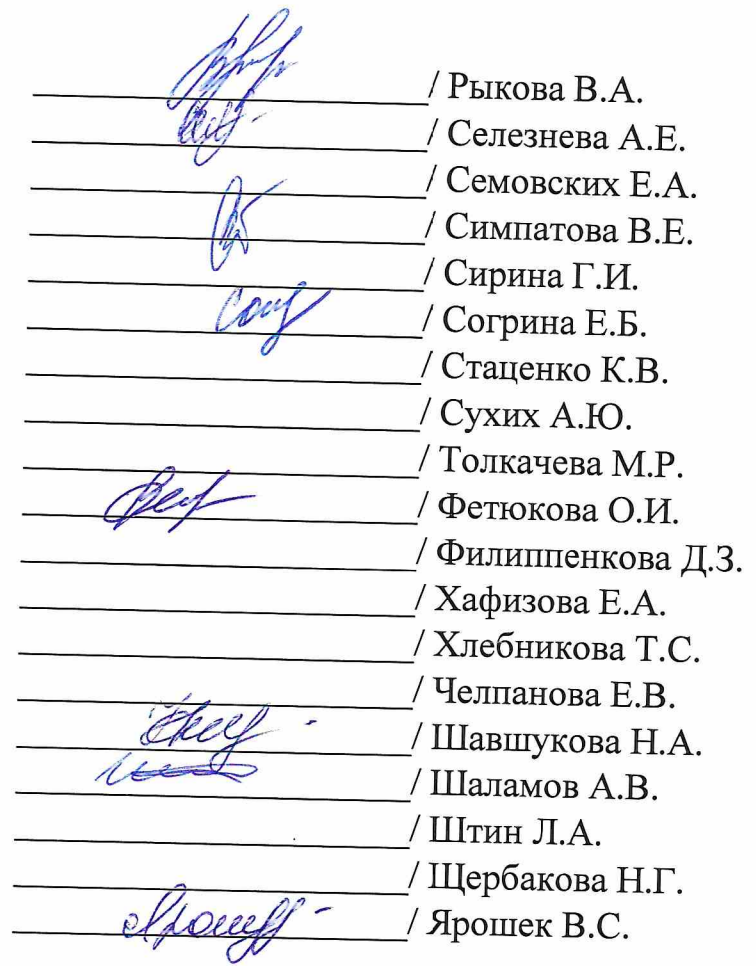 / Рыкова В.А.
/ Селезнева А.Е.
/ Семовских Е.А.
/ Симпатова В.Е.
/ Сирина Г.И.
/ Согрина Е.Б.
/ Стаценко К.В.
/ Сухих А.Ю.
/ Толкачева М.Р.
/ Фетюкова О.И.
/ Филиппенкова Д.З.
/ Хафизова Е.А.
/ Хлебникова Т.С.
/ Челпанова Е.В.
/ Шавшукова Н.А.
/ Шаламов А.В.
/ Штин Л.А.
/ Щербакова Н.Г.
/ Ярошек В.С.